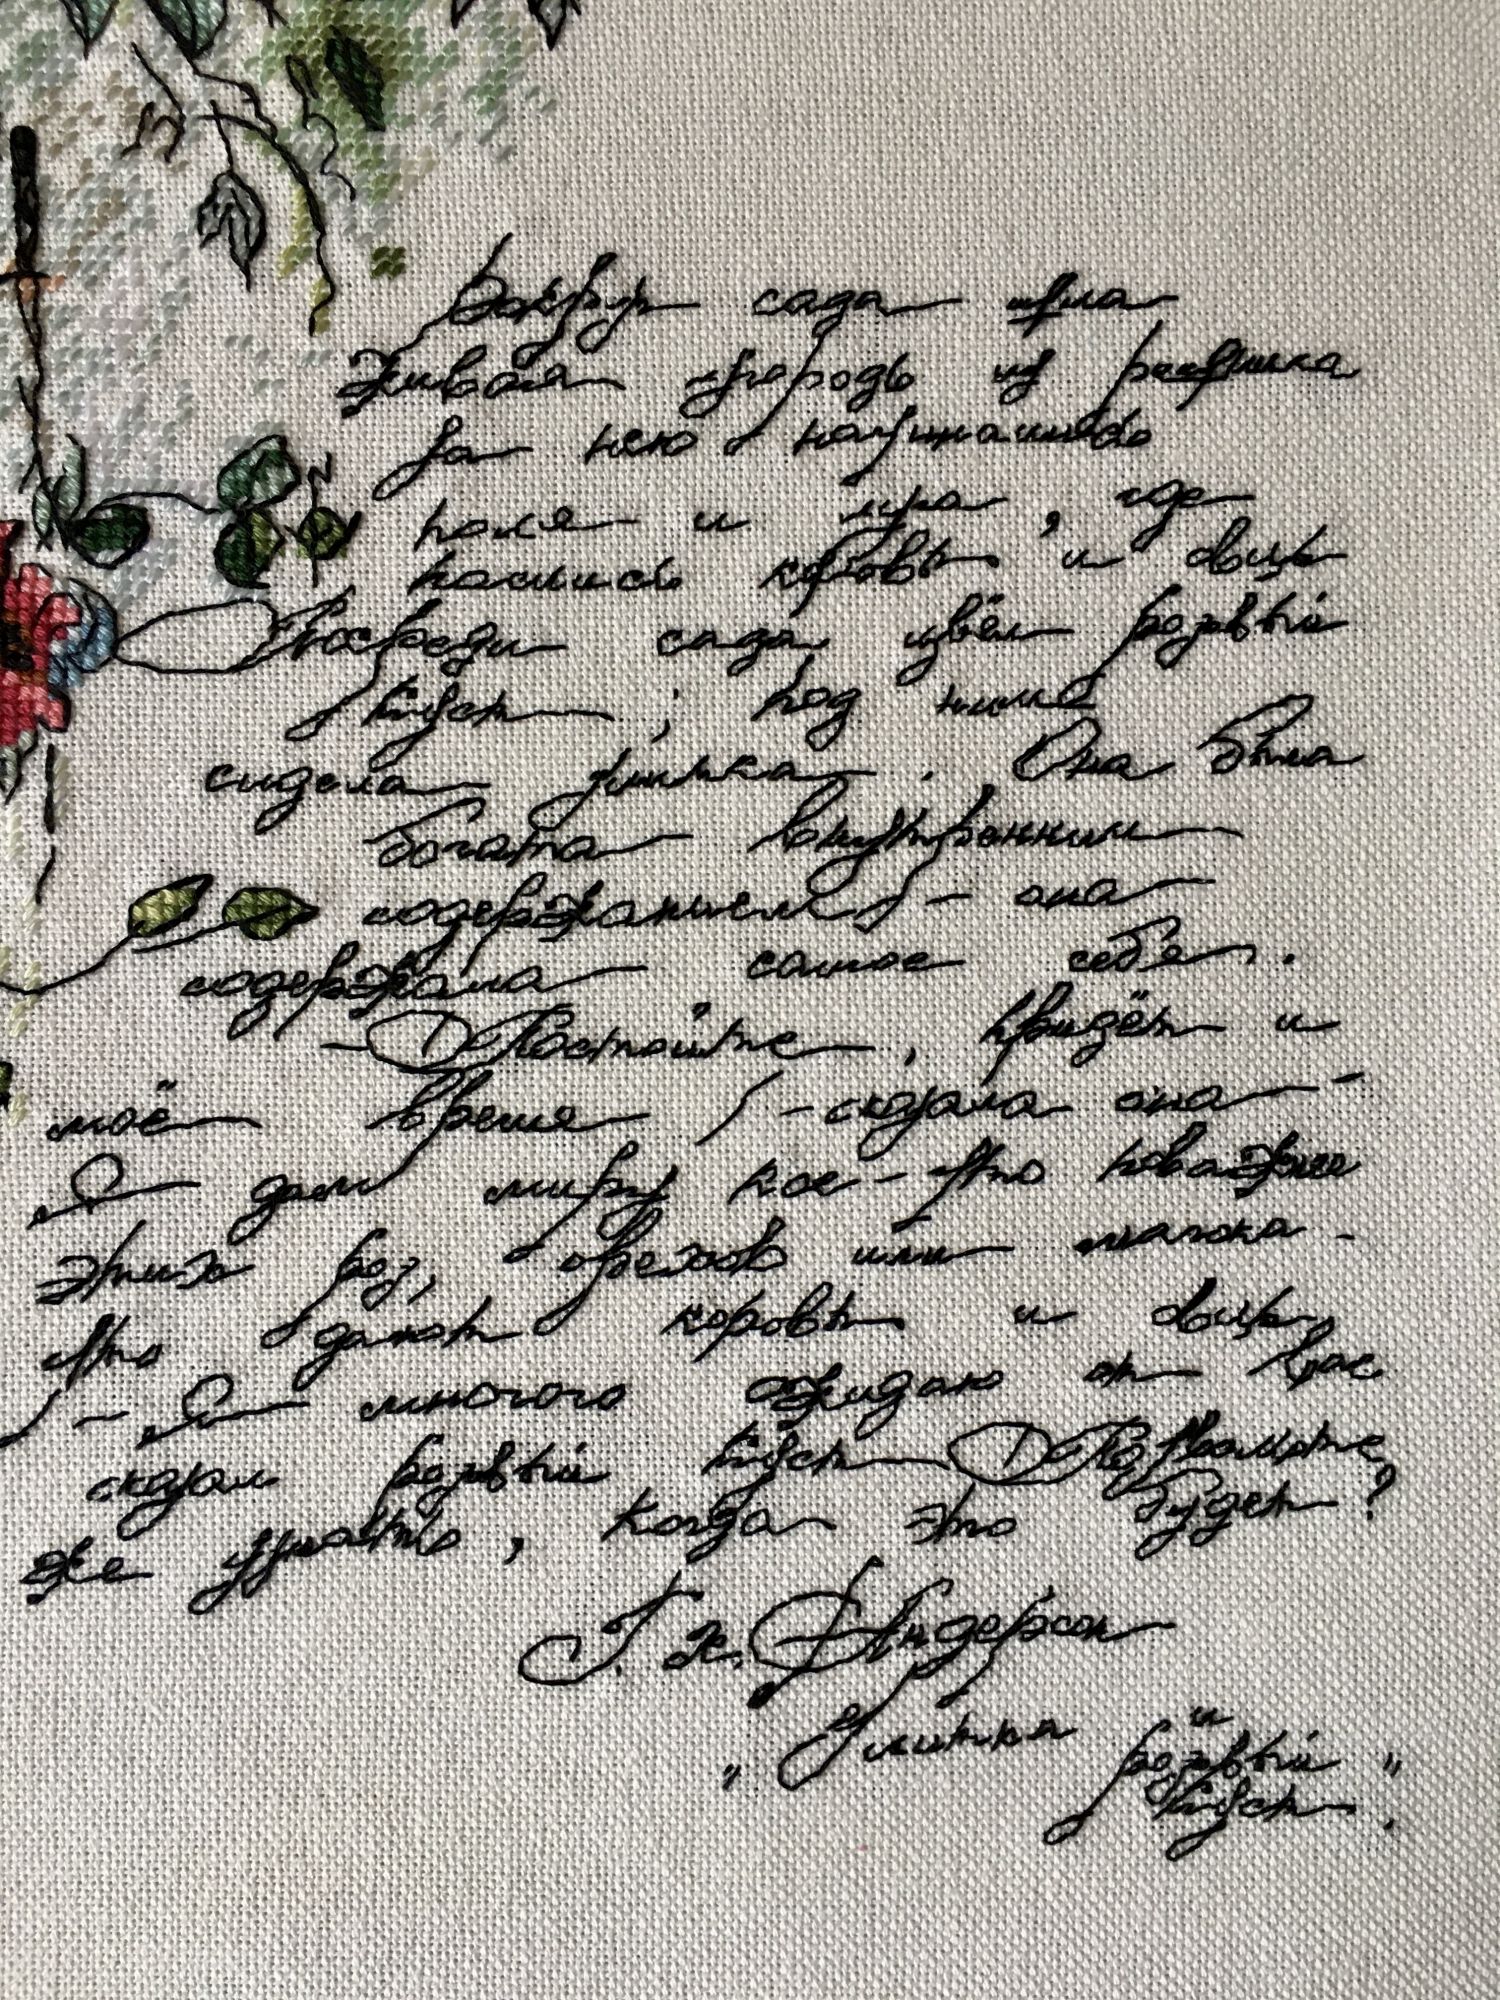 Вокруг сада шла
живая изгородь из орешника
За нею начинались
поля и луга, где
паслись коровы и овцы
Посреди сада цвёл розовый
куст; под ним
сидела улитка. Она была
богата внутренним
содержанием, - она
содержала самое себя.
- Постойте, придёт и
моё время, - сказала она -
Я дам миру кое-что поважнее
этих роз, орехов или молока -
что дают коровы и овцы.
- Я многого ожидаю от вас
сказал розовый куст Позвольте
же узнать, когда это будет?
Г. Х. Андерсон
"Улитка и
розовый
куст".